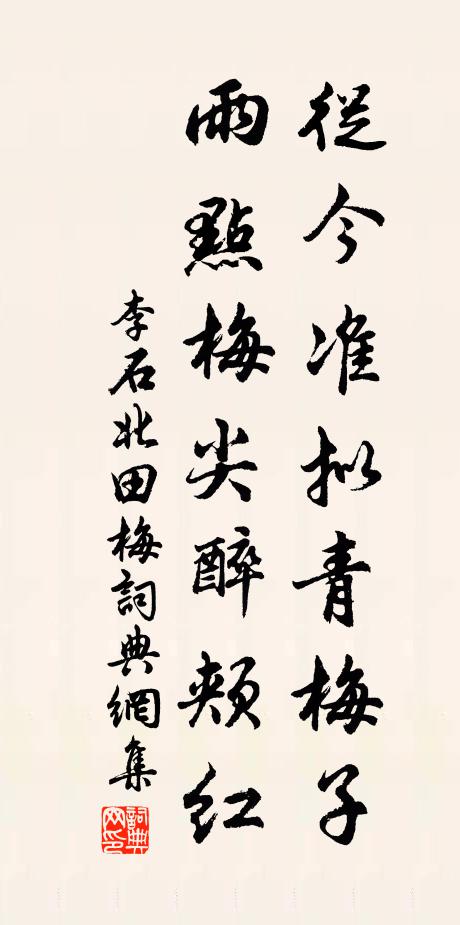 從今准拟青梅子
雨點梅尖醉頰紅
李石北田梅詞典網集
詞典
网印